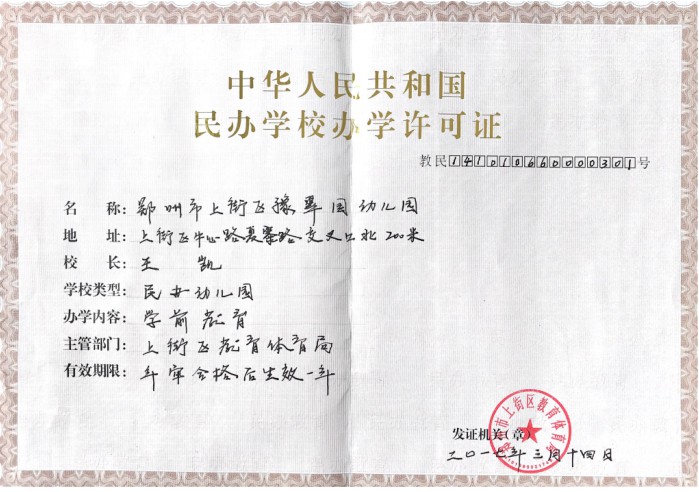 中华人民共和国
民办学校办学许可证
教民141010660000301号
名　　称：郑州市上街区豫翠园幼儿园
地　　址：上街区中心路夏寨路交叉口北200米
校　　长：王　凯
学校类型：民办幼儿园
办学内容：学前教育
主管部门：上街区教育体育局
有效期限：年审合格后生效一年
市上街区教育体育局
发证机关（章）
二〇一七年三月十四日